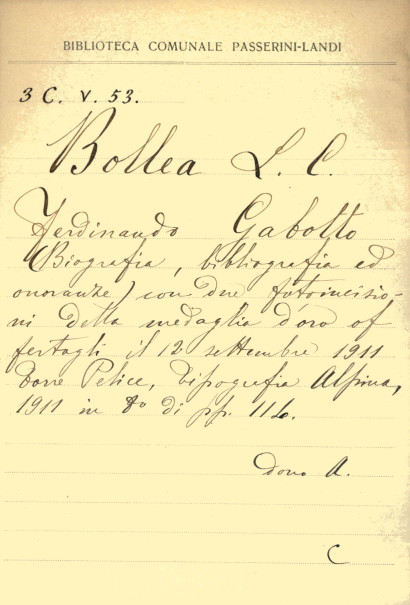 BIBLIOTECA COMUNALE PASSERINI-LANDI
3 C. V. 53.
Bollea L. C.
Ferdinando Gabotto
(Biografia, bibliografia ed
onoranze) con due fotoincisio-
ni della medaglia d'oro of
fertagli il 12 settembre 1911
Torre Pelice, Tipografia Alpina,
1911 in 8º di pp. 116.
dono A.
C